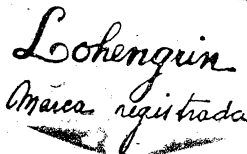 Lohengrin
Marca registrada